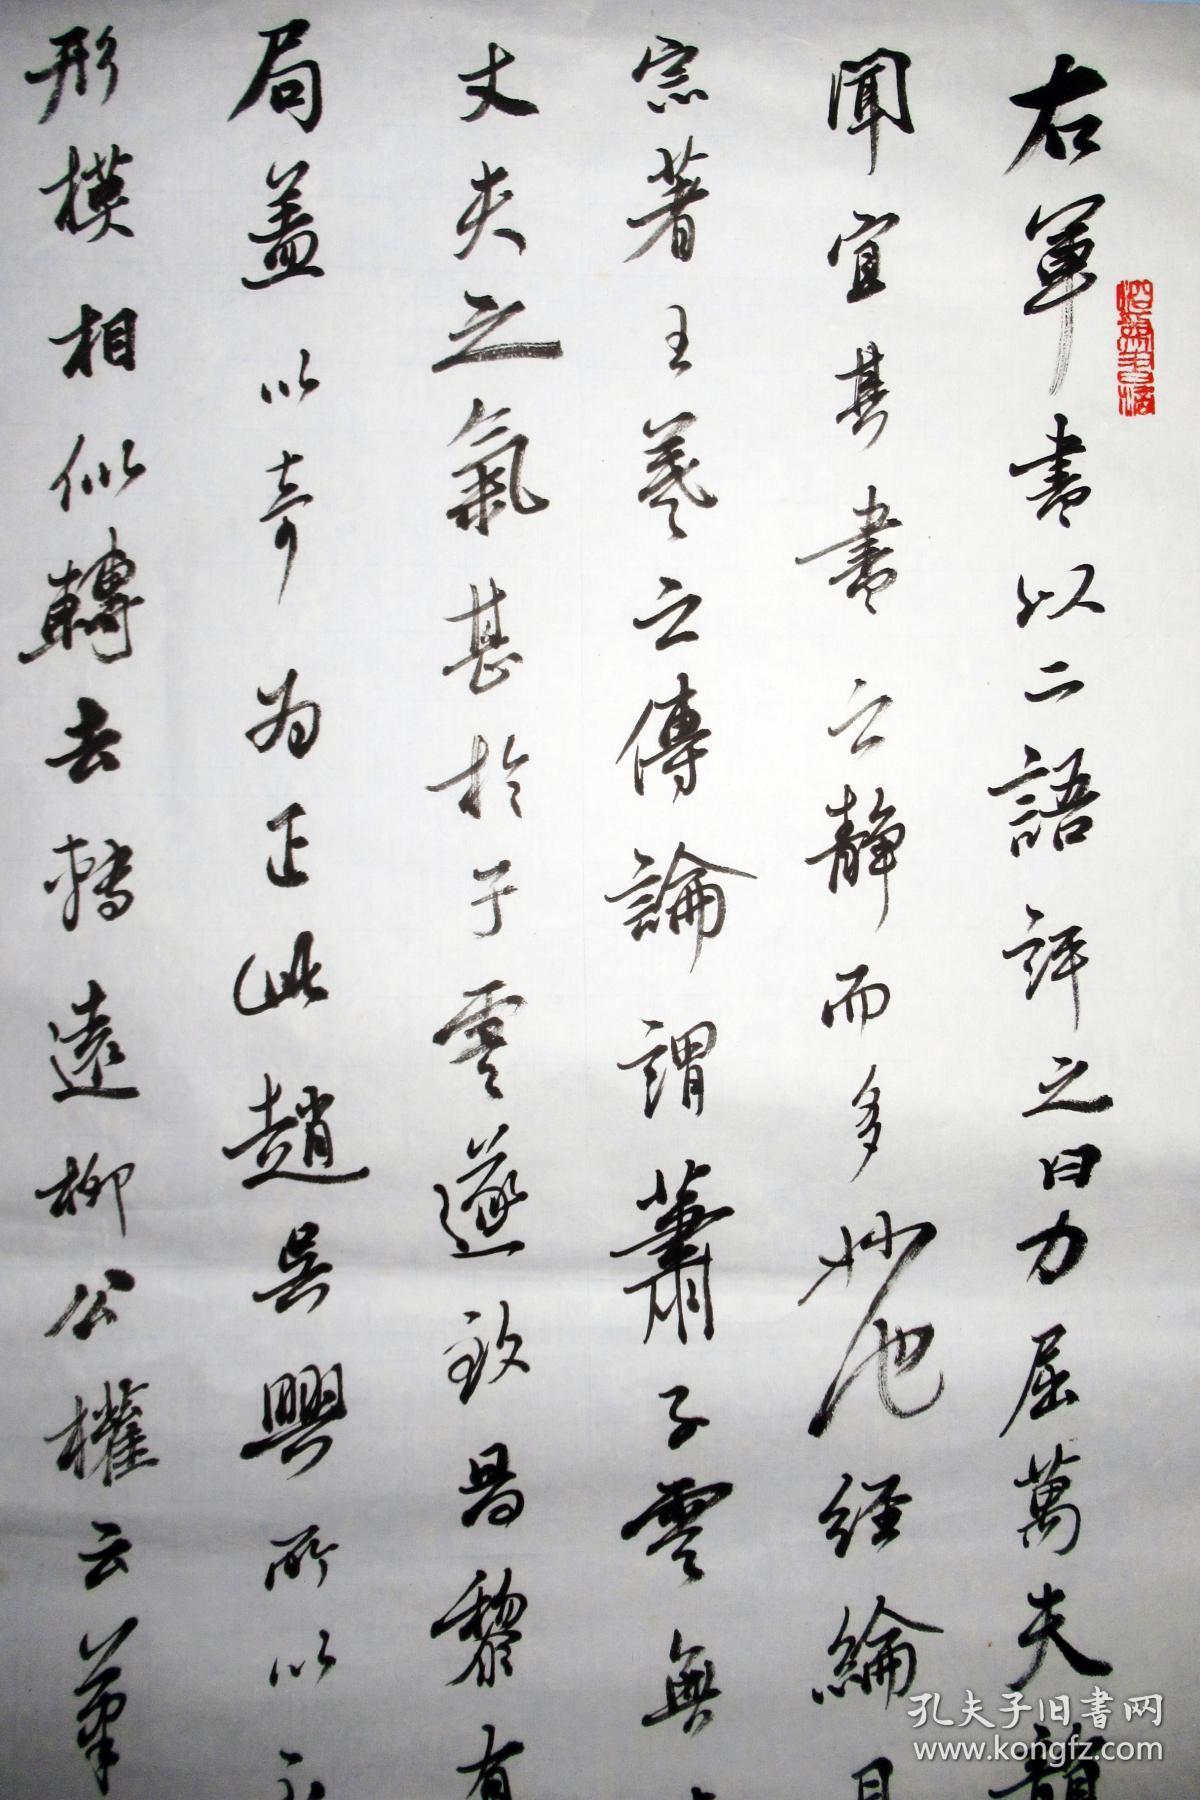 右軍書以二語評之曰力屈萬夫韻
聞宜其書之靜而多妙也經綸
宗著王羲之傳論謂蕭子雲無
丈夫之氣甚於子雲遂致昌黎有
局蓋以奇為正此趙吳興所以
形模相似轉去轉遠柳公權云筆
孔夫子旧书网
www.kongfz.com